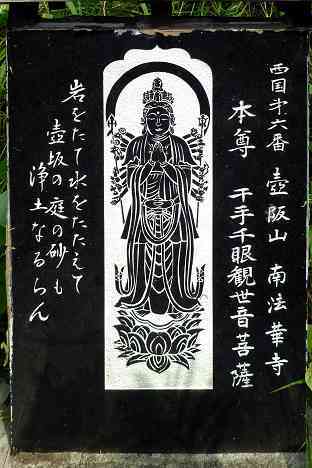 西国第六番 壺阪山 南法華寺
本尊 千手千眼観世音菩薩
岩をたて水をたたえて
壺坂の庭の砂も
浄土なるらん